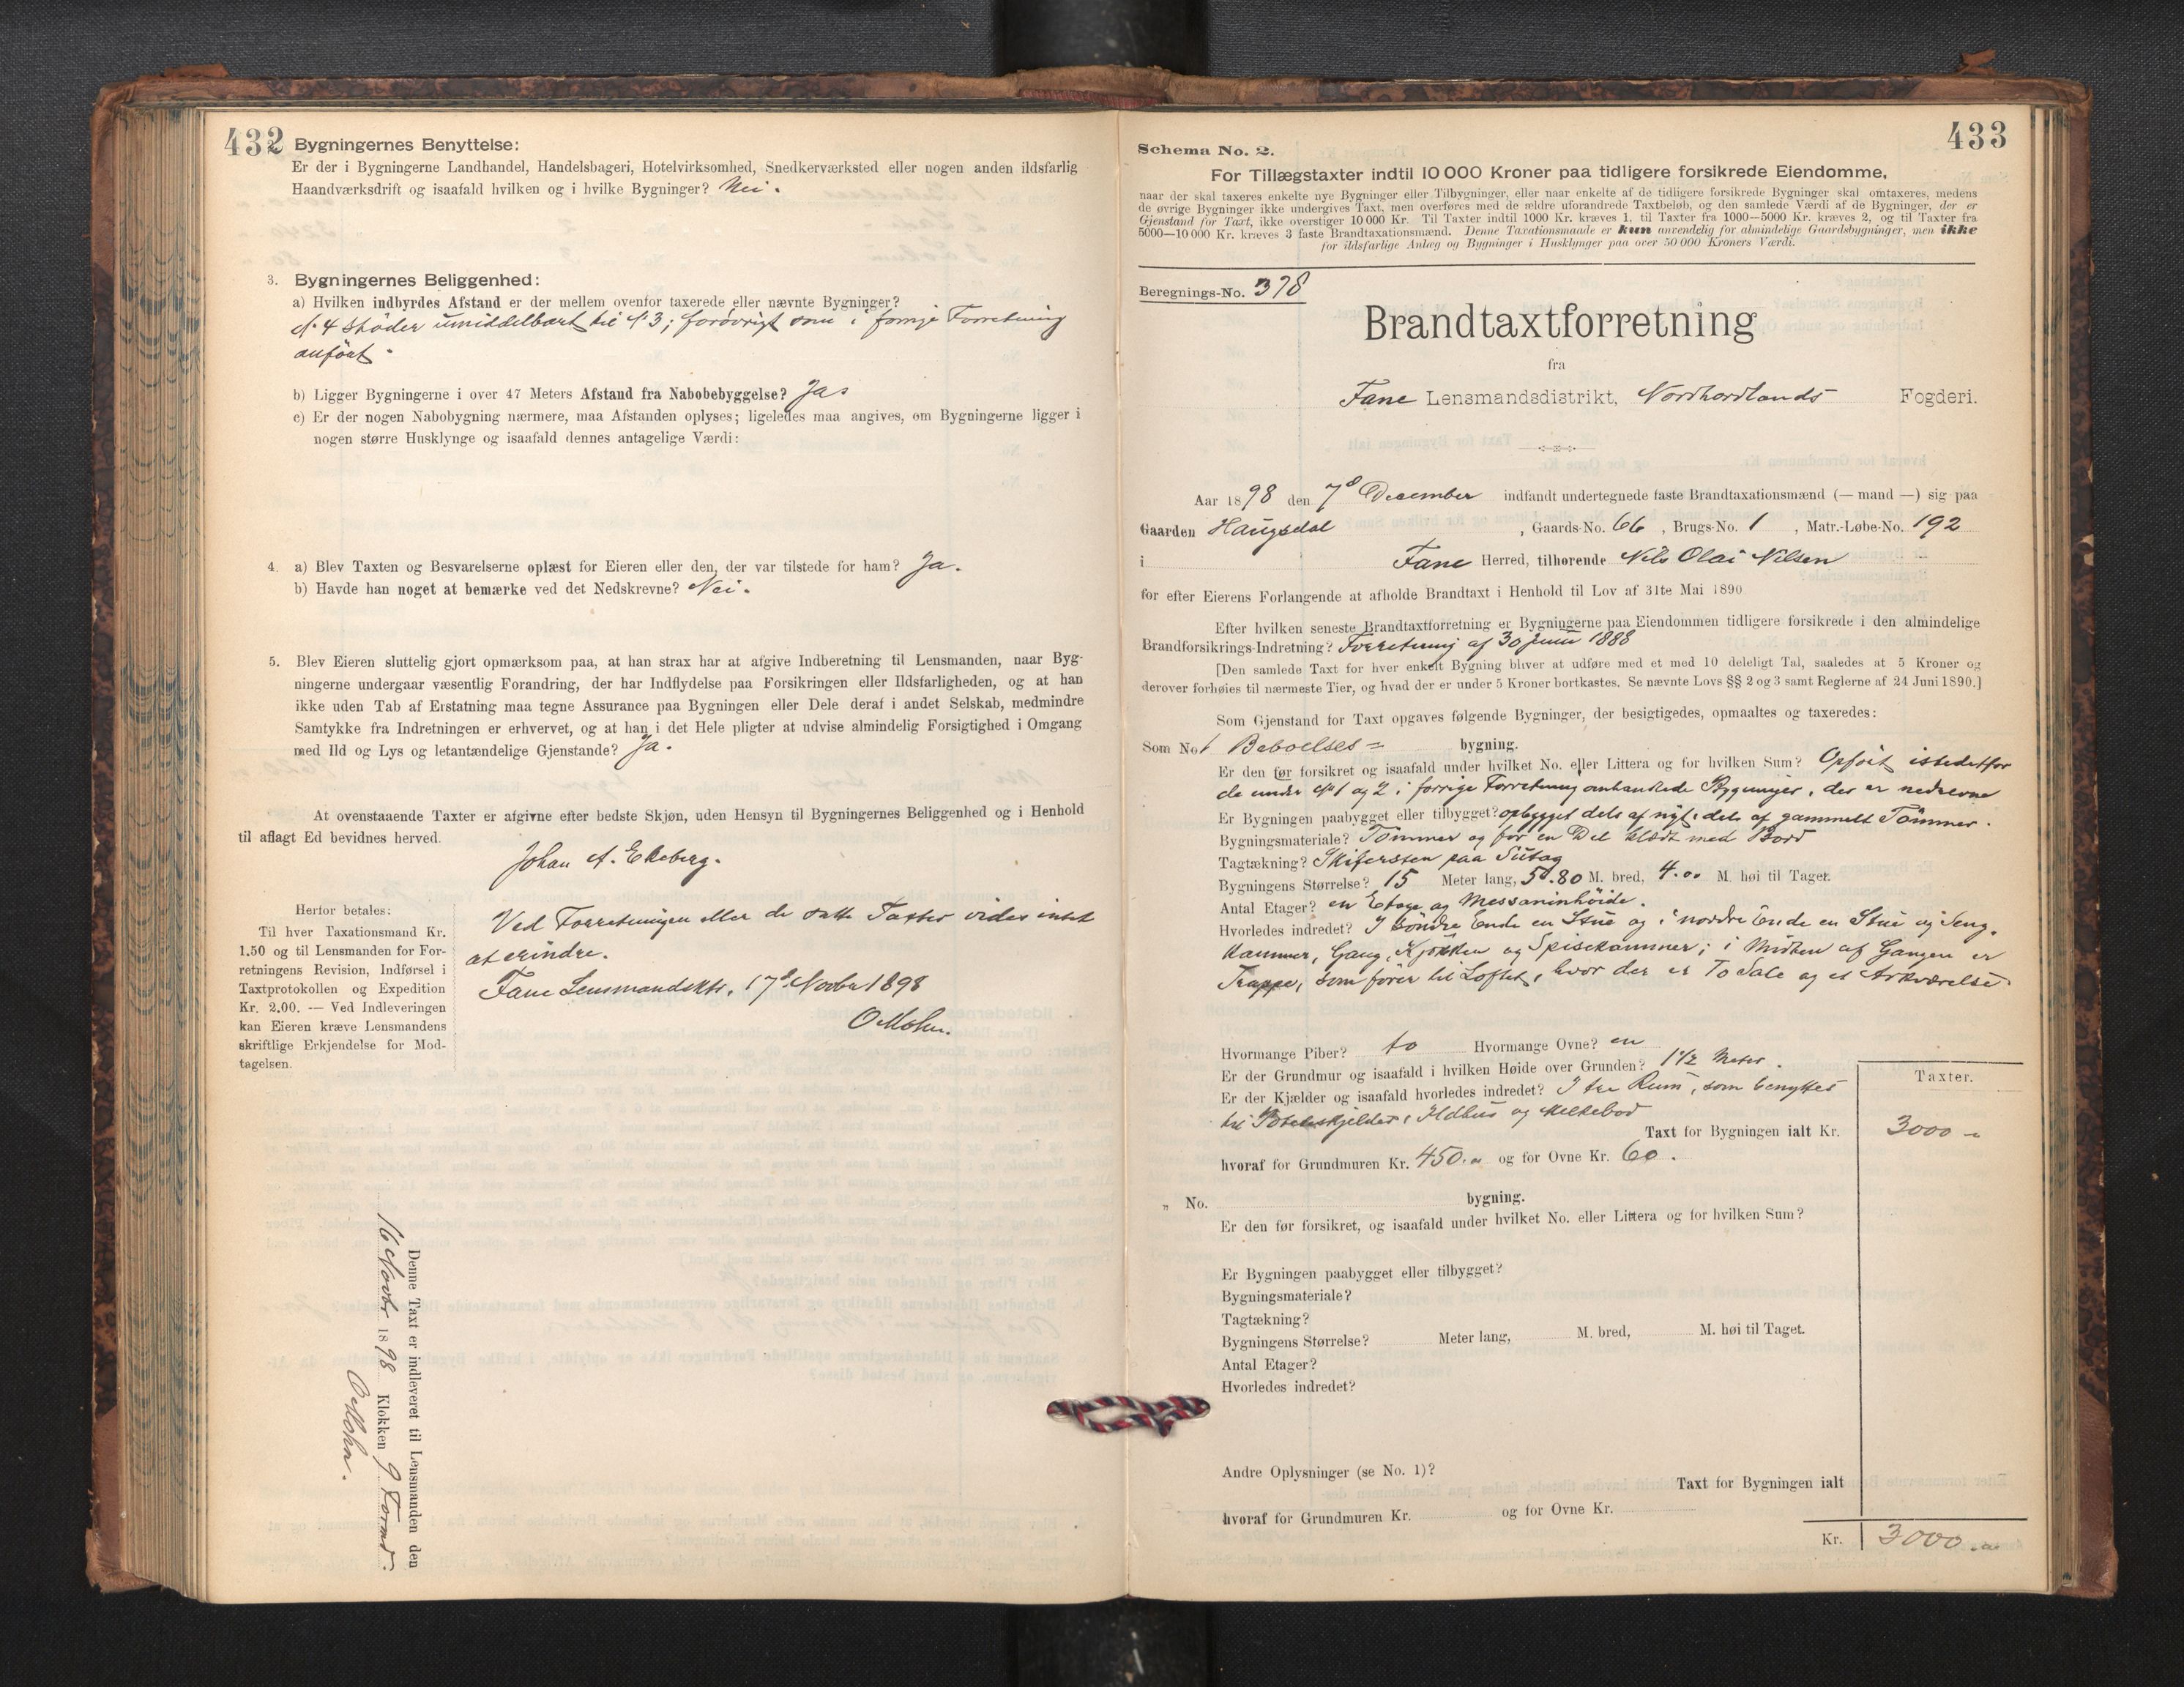 432
Bygningernes Benyttelse:
Er der i Bygningerne Landhandel, Handelsbageri, Hotelvirksomhed, Snedkerværksted eller nogen anden ildsfarlig
Haandværksdrift og isaafald hvilken og i hvilke Bygninger? Nei.
3. Bygningernes Beliggenhed:
a) Hvilken indbyrdes Afstand er der mellem ovenfor taxerede eller nævnte Bygninger?
N. 4 stöder umiddelbart til N 3; forövrigt som i forrige Forretning
anfört.
b) Ligger Bygningerne i over 47 Meters Afstand fra Nabobebyggelse? Ja
c) Er der nogen Nabobygning nærmere, maa Afstanden oplyses; ligeledes maa angives, om Bygningerne ligger i
nogen større Husklynge og isaafald dennes antagelige Værdi:
4. a) Blev Taxten og Besvarelserne oplæst for Eieren eller den, der var tilstede for ham? Ja.
b) Havde han noget at bemærke ved det Nedskrevne? Nei.
5. Blev Eieren sluttelig gjort opmærksom paa, at han strax har at afgive Indberetning til Lensmanden, naar Byg-
ningerne undergaar væsentlig Forandring, der har Indflydelse paa Forsikringen eller Ildsfarligheden, og at han
ikke uden Tab af Erstatning maa tegne Assurance paa Bygningen eller Dele deraf i andet Selskab, medmindre
Samtykke fra Indretningen er erhvervet, og at han i det Hele pligter at udvise almindelig Forsigtighed i Omgang
med Ild og Lys og letantændelige Gjenstande? Ja.
At ovenstaaende Taxter er afgivne efter bedste Skjøn, uden Hensyn til Bygningernes Beliggenhed og i Henhold
til aflagt Ed bevidnes herved.
Johan A. Ekeberg.
Herfor betales:
Til hver Taxationsmand Kr.
1.50 og til Lensmanden for For-
retningens Revision, Indførsel i
Taxtprotokollen og Expedition
Kr. 2.00. — Ved Indleveringen
kan Eieren kræve Lensmandens
skriftlige Erkjendelse for Mod-
tagelsen.
Ved Forretningen eller de satte Taxter vides intet
at erindre.
Fane Lensmandsktr. 17d Novbr 1898
O Mohn.
Denne Taxt er indleveret til Lensmanden den
16 Novbr 1898 Klokken 9 Formd.
O Mohn.
433
Schema No. 2.
For Tillægstaxter indtil 10 000 Kroner paa tidligere forsikrede Eiendomme,
naar der skal taxeres enkelte nye Bygninger eller Tilbygninger, eller naar enkelte af de tidligere forsikrede Bygninger skal omtaxeres, medens
de øvrige Bygninger ikke undergives Taxt, men overføres med de ældre uforandrede Taxtbeløb, og den samlede Værdi af de Bygninger, der er
Gjenstand for Taxt, ikke overstiger 10 000 Kr. Til Taxter indtil 1000 Kr. kræves 1, til Taxter fra 1000—5000 Kr. kræves 2, og til Taxter fra
5000—10 000 Kr. kræves 3 faste Brandtaxationsmænd. Denne Taxationsmaade er kun anvendelig for almindelige Gaardsbygninger, men ikke
for ildsfarlige Anlæg og Bygninger i Husklynger paa over 50 000 Kroners Værdi.
Beregnings-No. 378
Brandtaxtforretning
fra
Fane Lensmandsdistrikt, Nordhordlands Fogderi.
Aar 1898 den 7d December indfandt undertegnede faste Brandtaxationsmænd (— mand —) sig paa
Gaarden Haugsdal, Gaards-No. 66, Brugs-No. 1, Matr.-Løbe-No. 192
i Fane Herred, tilhørende Nils Olai Nilsen
for efter Eierens Forlangende at afholde Brandtaxt i Henhold til Lov af 31te Mai 1890
Efter hvilken seneste Brandtaxtforretning er Bygningerne paa Eiendommen tidligere forsikrede i den almindelige
Brandforsikrings-Indretning? Forretning af 30 Juni 1888
[Den samlede Taxt for hver enkelt Bygning bliver at udføre med et med 10 deleligt Tal, saaledes at 5 Kroner og
derover forhøies til nærmeste Tier, og hvad der er under 5 Kroner bortkastes. Se nævnte Lovs §§ 2 og 3 samt Reglerne af 24 Juni 1890.]
Som Gjenstand for Taxt opgaves følgende Bygninger, der besigtigedes, opmaaltes og taxeredes:
Som No 1 Beboelses= bygning.
Er den før forsikret og isaafald under hvilket No. eller Littera og for hvilken Sum? Opfört istedetfor
de under N 1 og 2 i forrige Forretning omhandlede Bygninger, der er nedrevne
Er Bygningen paabygget eller tilbygget? opbygget dels af nyt, dels af gammelt Tömmer.
Bygningsmateriale? Tömmer og for en Del klædt med Bord
Tagtækning? Skifersten paa Sutag
Bygningens Størrelse? 15 Meter lang, 5.80 M. bred, 4.00 M. høi til Taget.
Antal Etager? en Etage og Messaninhöide.
Hvorledes indredet? I söndre Ende en Stue og i nordre Ende en Stue og Seng.
kammer, Gang, Kjökken og Spisekammer; i Midten af Gangen er
Trappe, som förer til Loftet, hvor der er To Sale og et Arkværelse.
Hvormange Piber? to Hvormange Ovne? en
Er der Grundmur og isaafald i hvilken Høide over Grunden? 1 1/2 Meter.
Er der Kjælder og isaafald hvorledes indredet? I tre Rum, som benyttes
til Potetskjelder, Ildhus og Melkebod
Taxter.
Taxt for Bygningen ialt Kr. 3000 "
hvoraf for Grundmuren Kr. 450." og for Ovne Kr. 60.
" No. bygning.
Er den før forsikret, og isaafald under hvilket No. eller Littera og for hvilken Sum?
Er Bygningen paabygget eller tilbygget?
Bygningsmateriale?
Tagtækning?
Bygningens Størrelse? Meter lang, M. bred, M. høi til Taget.
Antal Etager?
Hvorledes indredet?
Andre Oplysninger (se No. 1)?
Taxt for Bygningen ialt
hvoraf for Grundmuren Kr. og for Ovne Kr.
Kr. 3000."